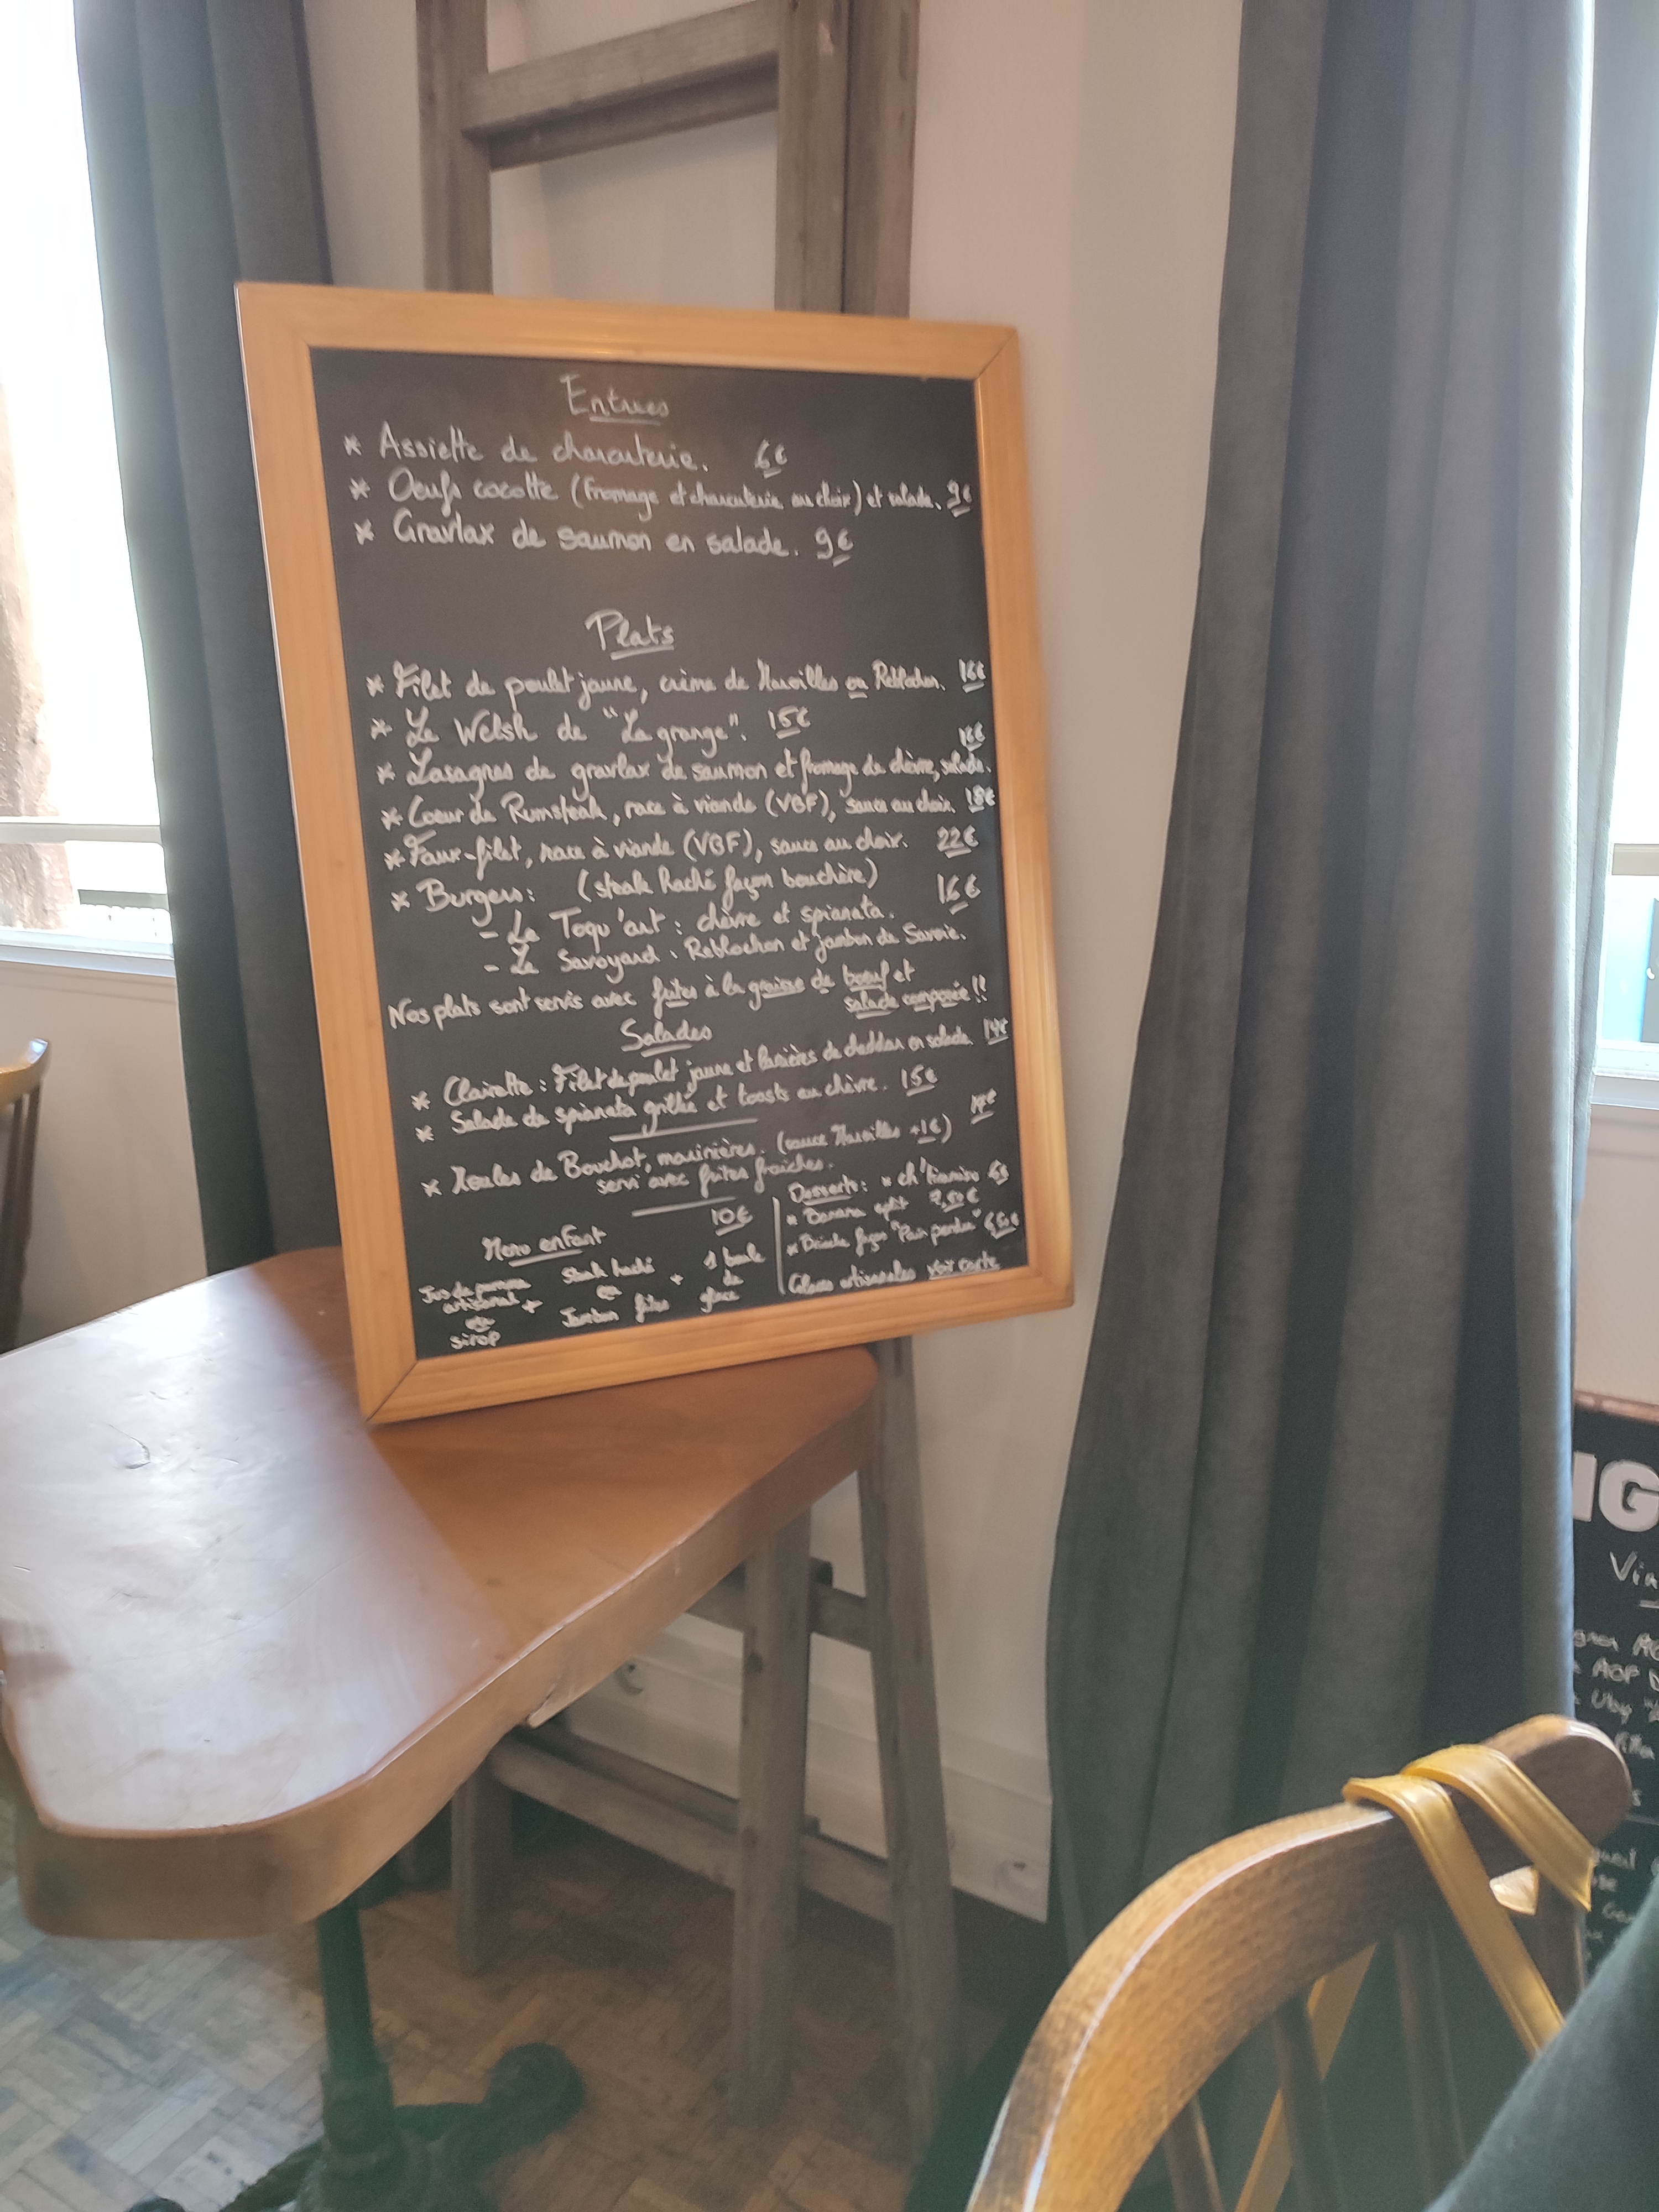 Entrées
* Assiette de charcuterie. 6€
* Oeufs cocotte (fromage et charcuterie au choix) et salade. 9€
* Gravlax de saumon en salade. 9€
Plats
* Filet de poulet jaune, crème de Maroilles ou Reblochon. 16€
* Le Welsh de "La grange". 15€
16€
* Lasagnes de gravlax de saumon et fromage de chèvre, salade.
* Coeur de Rumsteak, race à viande (VBF), sauce au choix. 18€
* Faux-filet, race à viande (VBF), sauce au choix. 22€
* Burgers: (steak haché façon bouchère) 16€
- Le Toqu'art : chèvre et spianata.
- Le Savoyard : Reblochon et jambon de Savoie.
Nos plats sont servis avec frites à la graisse de boeuf et
salade composée !!
Salades
* Clairette : Filet de poulet jaune et lanières de cheddar en salade. 14€
* Salade de spianata grillée et toasts au chèvre. 15€
* Moules de Bouchot, marinières. (sauce Maroilles +1€)
servi avec frites fraiches.
Menu enfant 10€
Jus de pomme artisanal
ou
sirop
+
Steak haché
ou
Jambon frites
+
1 boule
de
glace
Desserts: * ch'tiramisu
* Banana split 7,50€
* Brioche façon "Pain perdu" 6,50€
Glaces artisanales voir carte
IG
AOP
Uby